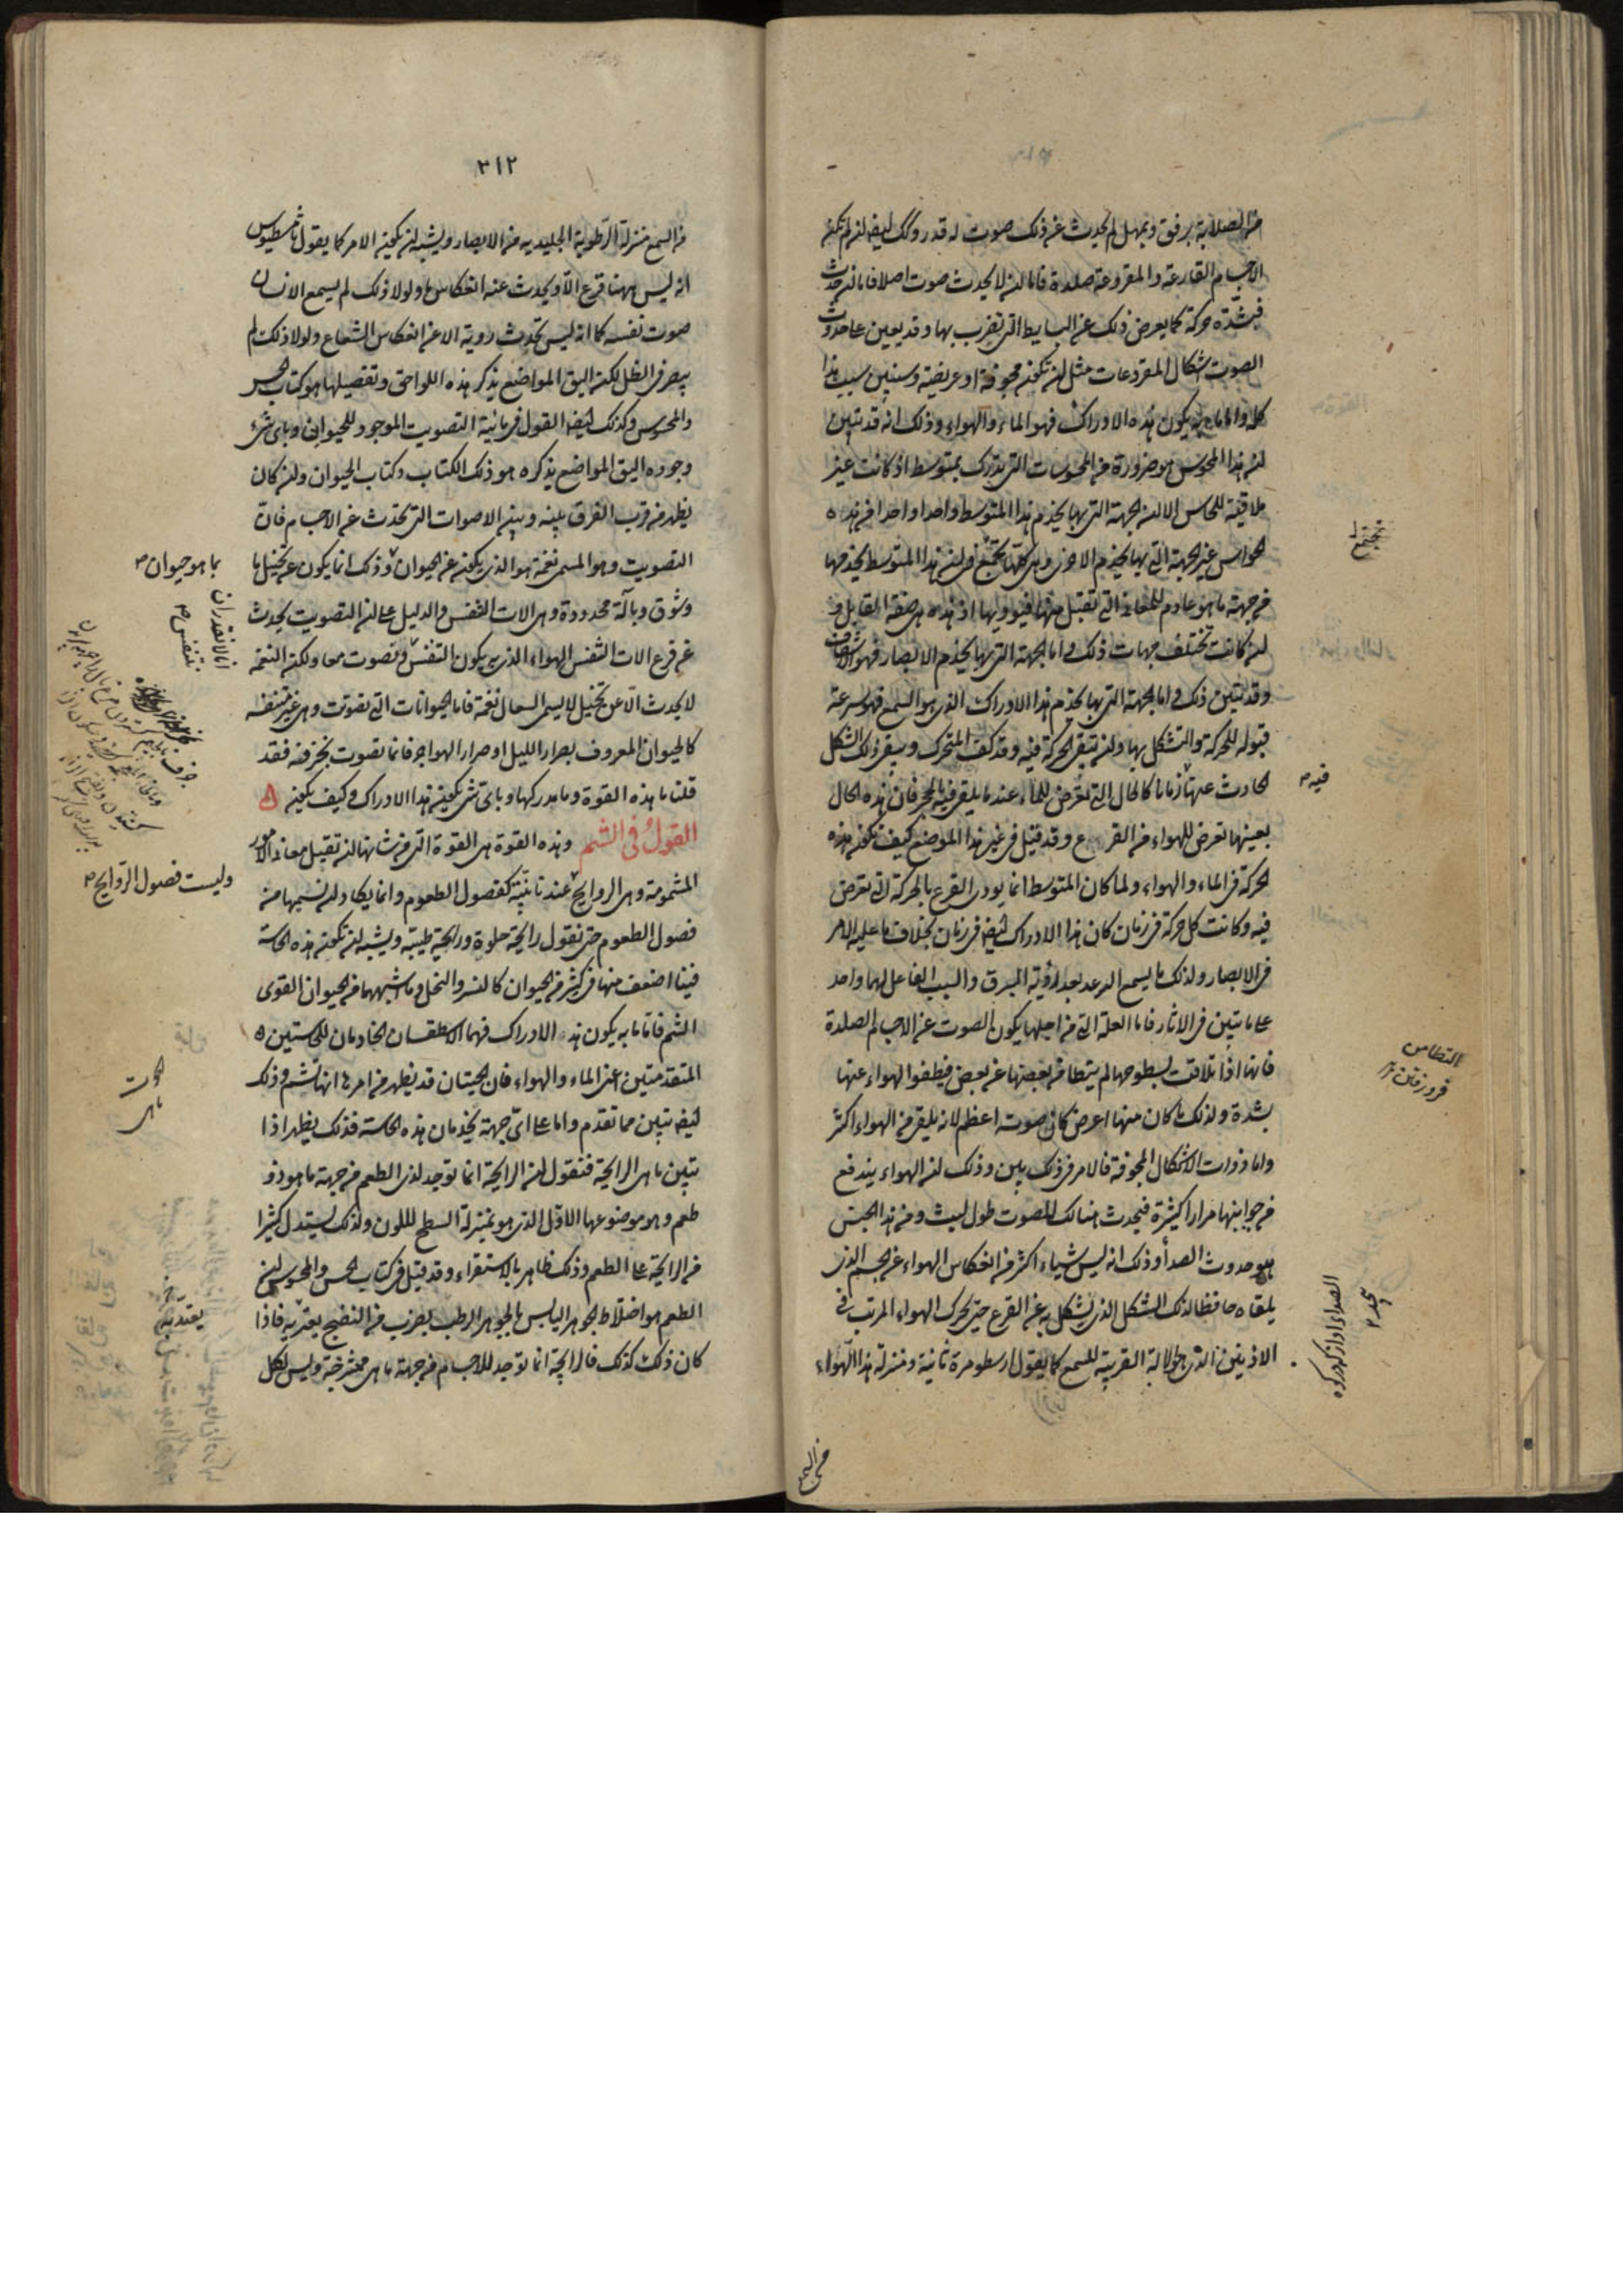 من الصلابة برفق وتمهل لم يحدث عن ذلك صوت له قدر وكك ايضا ان لم تكن
الاجسام القارعة والمقروعة صلدة فاما ان لا يحدث صوت اصلا فاما ان حدث
فبشدة حركة كما يعرض ذلك عن السياط التي تضرب بها وقد يعين على حدوث
الصوت اشكال المقروعات مثل ان تكون مجوفة او عريضة وسنبين سبب هذا
كله واما ما به يكون هذه الادراك فهو الماء والهواء وذلك انه قد تبين
ان هذا المحسوس هو ضرورة من المحسوسات التي تدرك بمتوسط اذ كانت غير
ملاقية للحاس الا ان الجهة التي بها يخدم هذا المتوسط واحدا واحدا من هذه
الحواس غير الجهة التي بها يخدم الاخرى وهي كلها تجتمع في ان هذا المتوسط يخدمها
من جهة ما هو عادم للمعاني التي تقبل منها فيوديها اذ هذه هي صفة القابل و
ان كانت تختلف جهات ذلك اما الجهة التي بها يخدم الابصار فهو الاشفاف
وقد تبين ذلك واما الجهة التي بها يخدم هذا الادراك الذي هو السمع فهو سرعة
قبوله للحركة والتشكل بها وان تبقى الحركة فيه وقد كف المتحرك ويبقى ذلك الشكل
الحادث عنها زمانا كالحال التي تعرض للماء عندما يلقى فيه الحجر فان هذه الحال
بعينها تعرض للهواء من القرع وقد قيل في غير هذا الموضع كيف تكون هذه
الحركة في الماء والهواء ولما كان المتوسط انما يودى القرع بالحركة التي تعرض
فيه وكانت كل حركة في زمان كان هذا الادراك ايضا في زمان بخلاف ما عليه الامر
في الابصار ولذلك ما يسمع الرعد بعد رؤية البرق والسبب الفاعل لهما واحد
على ما تبين في الاثار فاما العلة التي من اجلها يكون الصوت عن الاجسام الصلدة
فانها اذا تلاقت بسطوحها لم يتطامن بعضها عن بعض فيطفوا الهواء عنها
بشدة ولذلك ما كان منها اعرض كان صوته اعظم لانه يلقى من الهواء اكثر
واما ذوات الاشكال المجوفة فالامر في ذلك بين وذلك ان الهواء يندفع
من جوانبها مرارا كثيرة فيحدث هنالك للصوت طول لبث ومن هذا الجنس
هو حدوث الصدأ وذلك انه ليس شياء اكثر من انعكاس الهواء عن الجسم الذي
يلقاه حافظا لذلك الشكل الذي تشكل به عن القرع حتى يحرك الهواء المرتب في
الاذينين الذي هو الالة القريبة للسمع كما يقول ارسطو مرة ثانية ومنزلة هذا الهواء
تجتمع
فيه
التطامن
فرو رفتن
من السمع
٣١٢
من السمع منزلة الرطوبة الجليدية من الابصار ويشبه ان يكون الامر كما يقول ثامسطيوس
انه ليس ههنا قرع الا ويحدث عنه انعكاس ما ولولا ذلك لم يسمع الانسان
صوت نفسه كما انه ليس تحدث روية الا عن انعكاس الشعاع ولولا ذلك لم
يبصر في الظل لكن اليق المواضع بذكر هذه اللواحق وتفصيلها هو كتاب الحس
والمحسوس وكذلك ايضا القول في مائية التصويت الموجود للحيوان وباى شىء
وجوده اليق المواضع بذكره هو ذلك الكتاب وكتاب الحيوان وان كان
يظهر من قرب الفرق بينه وبين الاصوات التي تحدث عن الاجسام فان
التصويت وهو المسمى نغمة هو الذي يكون عن الحيوان وذلك انما يكون عن تخيل ما
وشوق وبآلة محدودة وهي الات التنفس والدليل على ان التصويت يحدث
عن قرع الات التنفس الهواء الذي به يكون التنفس ونصوت معا ولكن النغمة
لا يحدث الا عن تخيل لا يسمى السعال نغمة فاما الحيوانات التي تصوت وهي غير متنفسة
كالحيوان المعروف بصرار الليل او صرار الهواجر فانما تصوت بحزفه فقد
قلنا ما هذه القوة وما مدركها وباى شىء يكون هذا الادراك وكيف يكون
القول في الشم وهذه القوة هي القوة التي من شانها ان تقبل معاني الامور
المشمومة وهي الروايح عندنا بينة كفصول الطعوم وانما يكاد ان نسميها من
فصول الطعوم حتى نقول رايحة حلوة ورايحة طيبة ويشبه ان تكون هذه الحاسة
فينا اضعف منها في كثير من الحيوان كالنسر والنحل وما اشبههما من الحيوان القوى
الشم فاما ما به يكون هذه الادراك فهما الاسطقسان الخادمان للحاستين
المتقدمتين اعنى الماء والهواء فان الحيتان قد يظهر من امرها انها تشم وذلك
ايضا تبين مما تقدم واما على اى جهة يخدمان هذه الحاسة فذلك يظهر اذا
تبين ما هي الرايحة فنقول ان الرايحة انما توجد لذى الطعم من جهة ما هو ذو
طعم وهو موضوعها الاول الذي هو بمنزلة السطح لللون ولذلك يستدل كثيرا
من الرايحة على الطعم وذلك ظاهر بالاستقراء وقد قيل في كتاب الحس والمحسوس ان
الطعم هو اختلاط الجوهر اليابس بالجوهر الرطب بضرب من النضج يعتريه فاذا
كان ذلك كذلك فالرايحة انما توجد للاجسام من جهة ما هي ممتزجة وليس لكل
بما هو حيوان
انا لا نقدر ان
نتنفس
وليست فصول الروايح